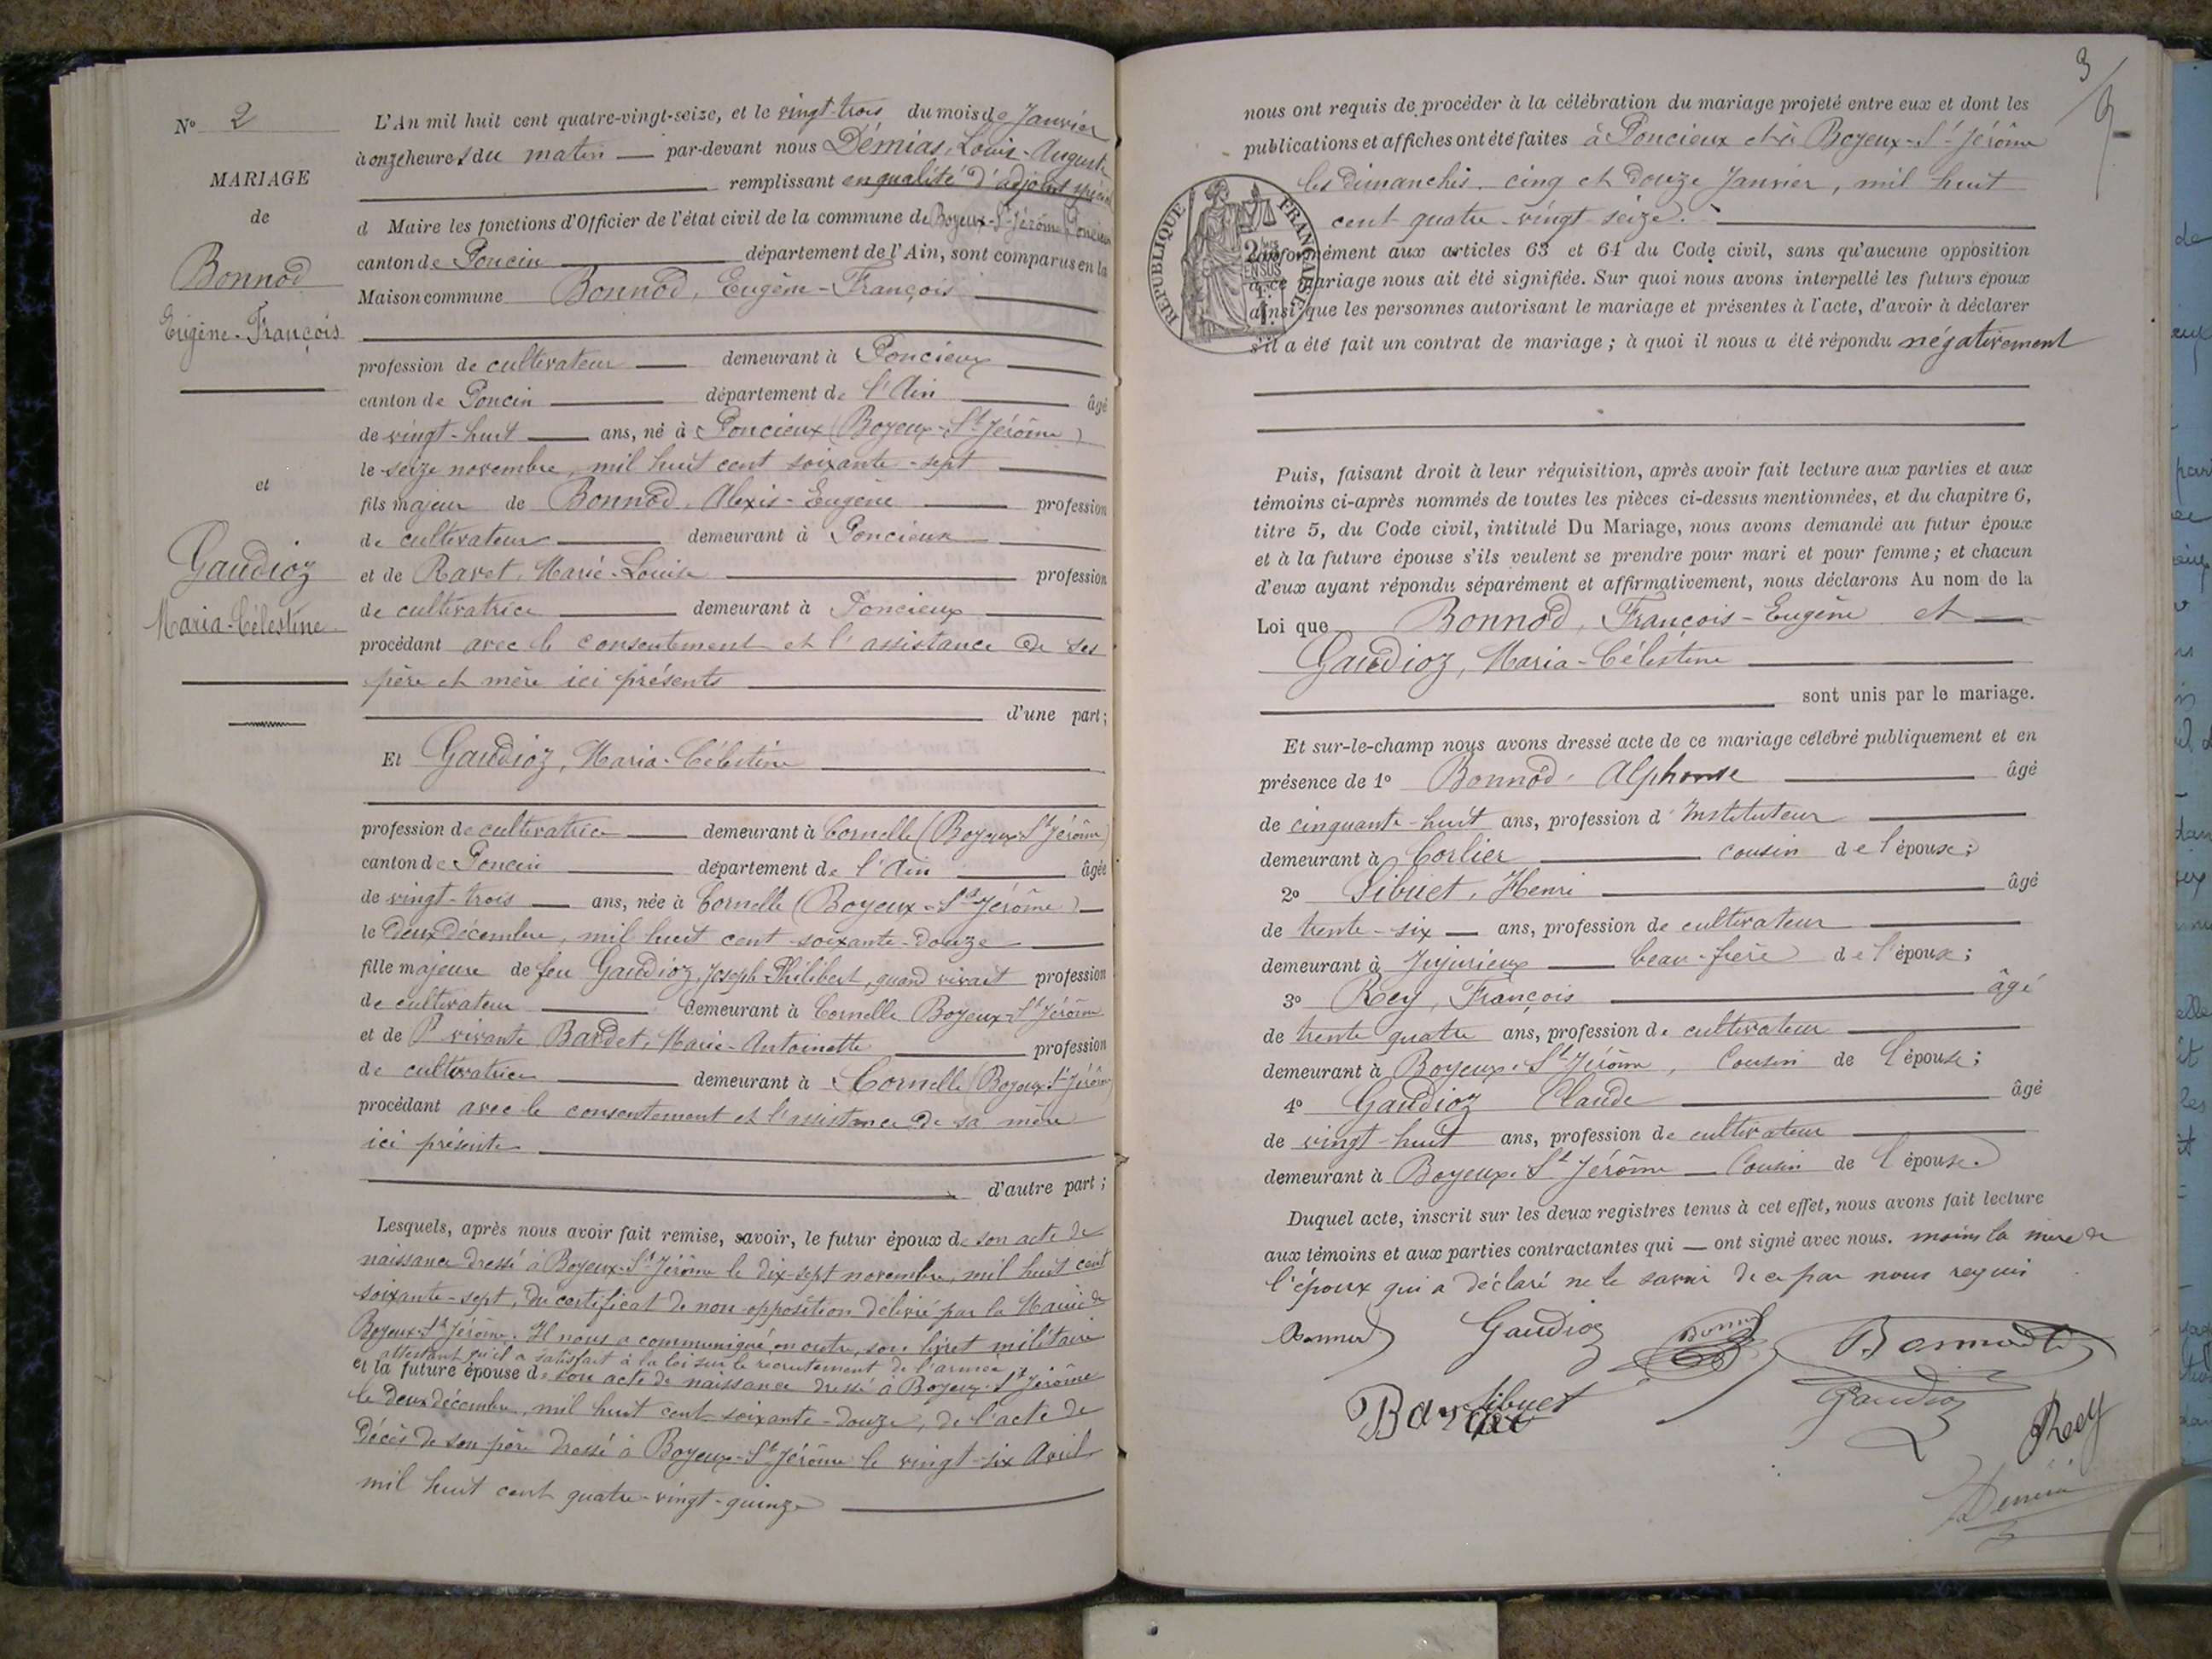 N° 2
MARIAGE
de
Bonnod
Eugène-François
et
Gaudioz
Maria-Célestine
L'An mil huit cent quatre-vingt-seize, et le vingt-trois du mois de Janvier
à onze heures du matin par-devant nous Démias, Louis-Auguste
remplissant en qualité d'adjoint spécial
d Maire les fonctions d'Officier de l'état civil de la commune de Boyeux-St-Jérôme (Poncieux
canton de Poncin département de l'Ain, sont comparus en la
Maison commune Bonnod, Eugène-François
profession de cultivateur demeurant à Poncieux
canton de Poncin département de l'Ain âgé
de vingt-huit ans, né à Poncieux (Boyeux-St-Jérôme)
le seize novembre, mil huit cent soixante-sept
fils majeur de Bonnod, Alexis-Eugène profession
de cultivateur demeurant à Poncieux
et de Ravet, Marie-Louise profession
de cultivatrice demeurant à Poncieux
procédant avec le consentement et l'assistance de ses
père et mère ici présents
d'une part;
Et Gaudioz, Maria-Célestine
profession de cultivatrice demeurant à Cornelle (Boyeux-St-Jérôme)
canton de Poncin département de l'Ain âgée
de vingt-trois ans, née à Cornelle (Boyeux-St-Jérôme)
le deux décembre, mil huit cent soixante-douze
fille majeure de feu Gaudioz, Joseph-Philibert, quand vivait profession
de cultivateur demeurant à Cornelle Boyeux-St-Jérôme
et de vivante Bardet, Marie-Antoinette profession
de cultivatrice demeurant à Cornelle (Boyeux-St-Jérôme)
procédant avec le consentement et l'assistance de sa mère
ici présente
d'autre part;
Lesquels, après nous avoir fait remise, savoir, le futur époux de son acte de
naissance dressé à Boyeux-St-Jérôme le dix-sept novembre, mil huit cent
soixante-sept, du certificat de non opposition délivré par la Mairie de
Boyeux-St-Jérôme. Il nous a communiqué, en outre, son livret militaire
attestant qu'il a satisfait à la loi sur le recrutement de l'armée;
et la future épouse de son acte de naissance dressé à Boyeux-St-Jérôme
le deux décembre, mil huit cent soixante-douze, de l'acte de
décès de son père dressé à Boyeux-St-Jérôme le vingt-six Avril
mil huit cent quatre-vingt-quinze
3
nous ont requis de procéder à la célébration du mariage projeté entre eux et dont les
publications et affiches ont été faites à Poncieux et à Boyeux-St-Jérôme
les dimanches cinq et douze Janvier, mil huit
cent quatre-vingt-seize.
RÉPUBLIQUE FRANÇAISE
conformément aux articles 63 et 64 du Code civil, sans qu'aucune opposition
à ce mariage nous ait été signifiée. Sur quoi nous avons interpellé les futurs époux
ainsi que les personnes autorisant le mariage et présentes à l'acte, d'avoir à déclarer
s'il a été fait un contrat de mariage; à quoi il nous a été répondu négativement
Puis, faisant droit à leur réquisition, après avoir fait lecture aux parties et aux
témoins ci-après nommés de toutes les pièces ci-dessus mentionnées, et du chapitre 6,
titre 5, du Code civil, intitulé Du Mariage, nous avons demandé au futur époux
et à la future épouse s'ils veulent se prendre pour mari et pour femme; et chacun
d'eux ayant répondu séparément et affirmativement, nous déclarons Au nom de la
Loi que Bonnod, François-Eugène et
Gaudioz, Maria-Célestine
sont unis par le mariage.
Et sur-le-champ nous avons dressé acte de ce mariage célébré publiquement et en
présence de 1° Bonnod, Alphonse âgé
de cinquante-huit ans, profession d'Instituteur
demeurant à Corlier cousin de l'épouse;
2° Sibuet, Henri âgé
de trente-six ans, profession de cultivateur
demeurant à Jujurieux beau-frère de l'époux;
3° Rey, François âgé
de trente quatre ans, profession de cultivateur
demeurant à Boyeux-St-Jérôme, Cousin de l'épouse;
4° Gaudioz Claude âgé
de vingt-huit ans, profession de cultivateur
demeurant à Boyeux-St-Jérôme Cousin de l'épouse.
Duquel acte, inscrit sur les deux registres tenus à cet effet, nous avons fait lecture
aux témoins et aux parties contractantes qui ont signé avec nous. moins la mère de
l'époux qui a déclaré ne le savoir de ce par nous requis
Bonnod Gaudioz Bonnod Bonnod
Sibuet Gaudioz Rey